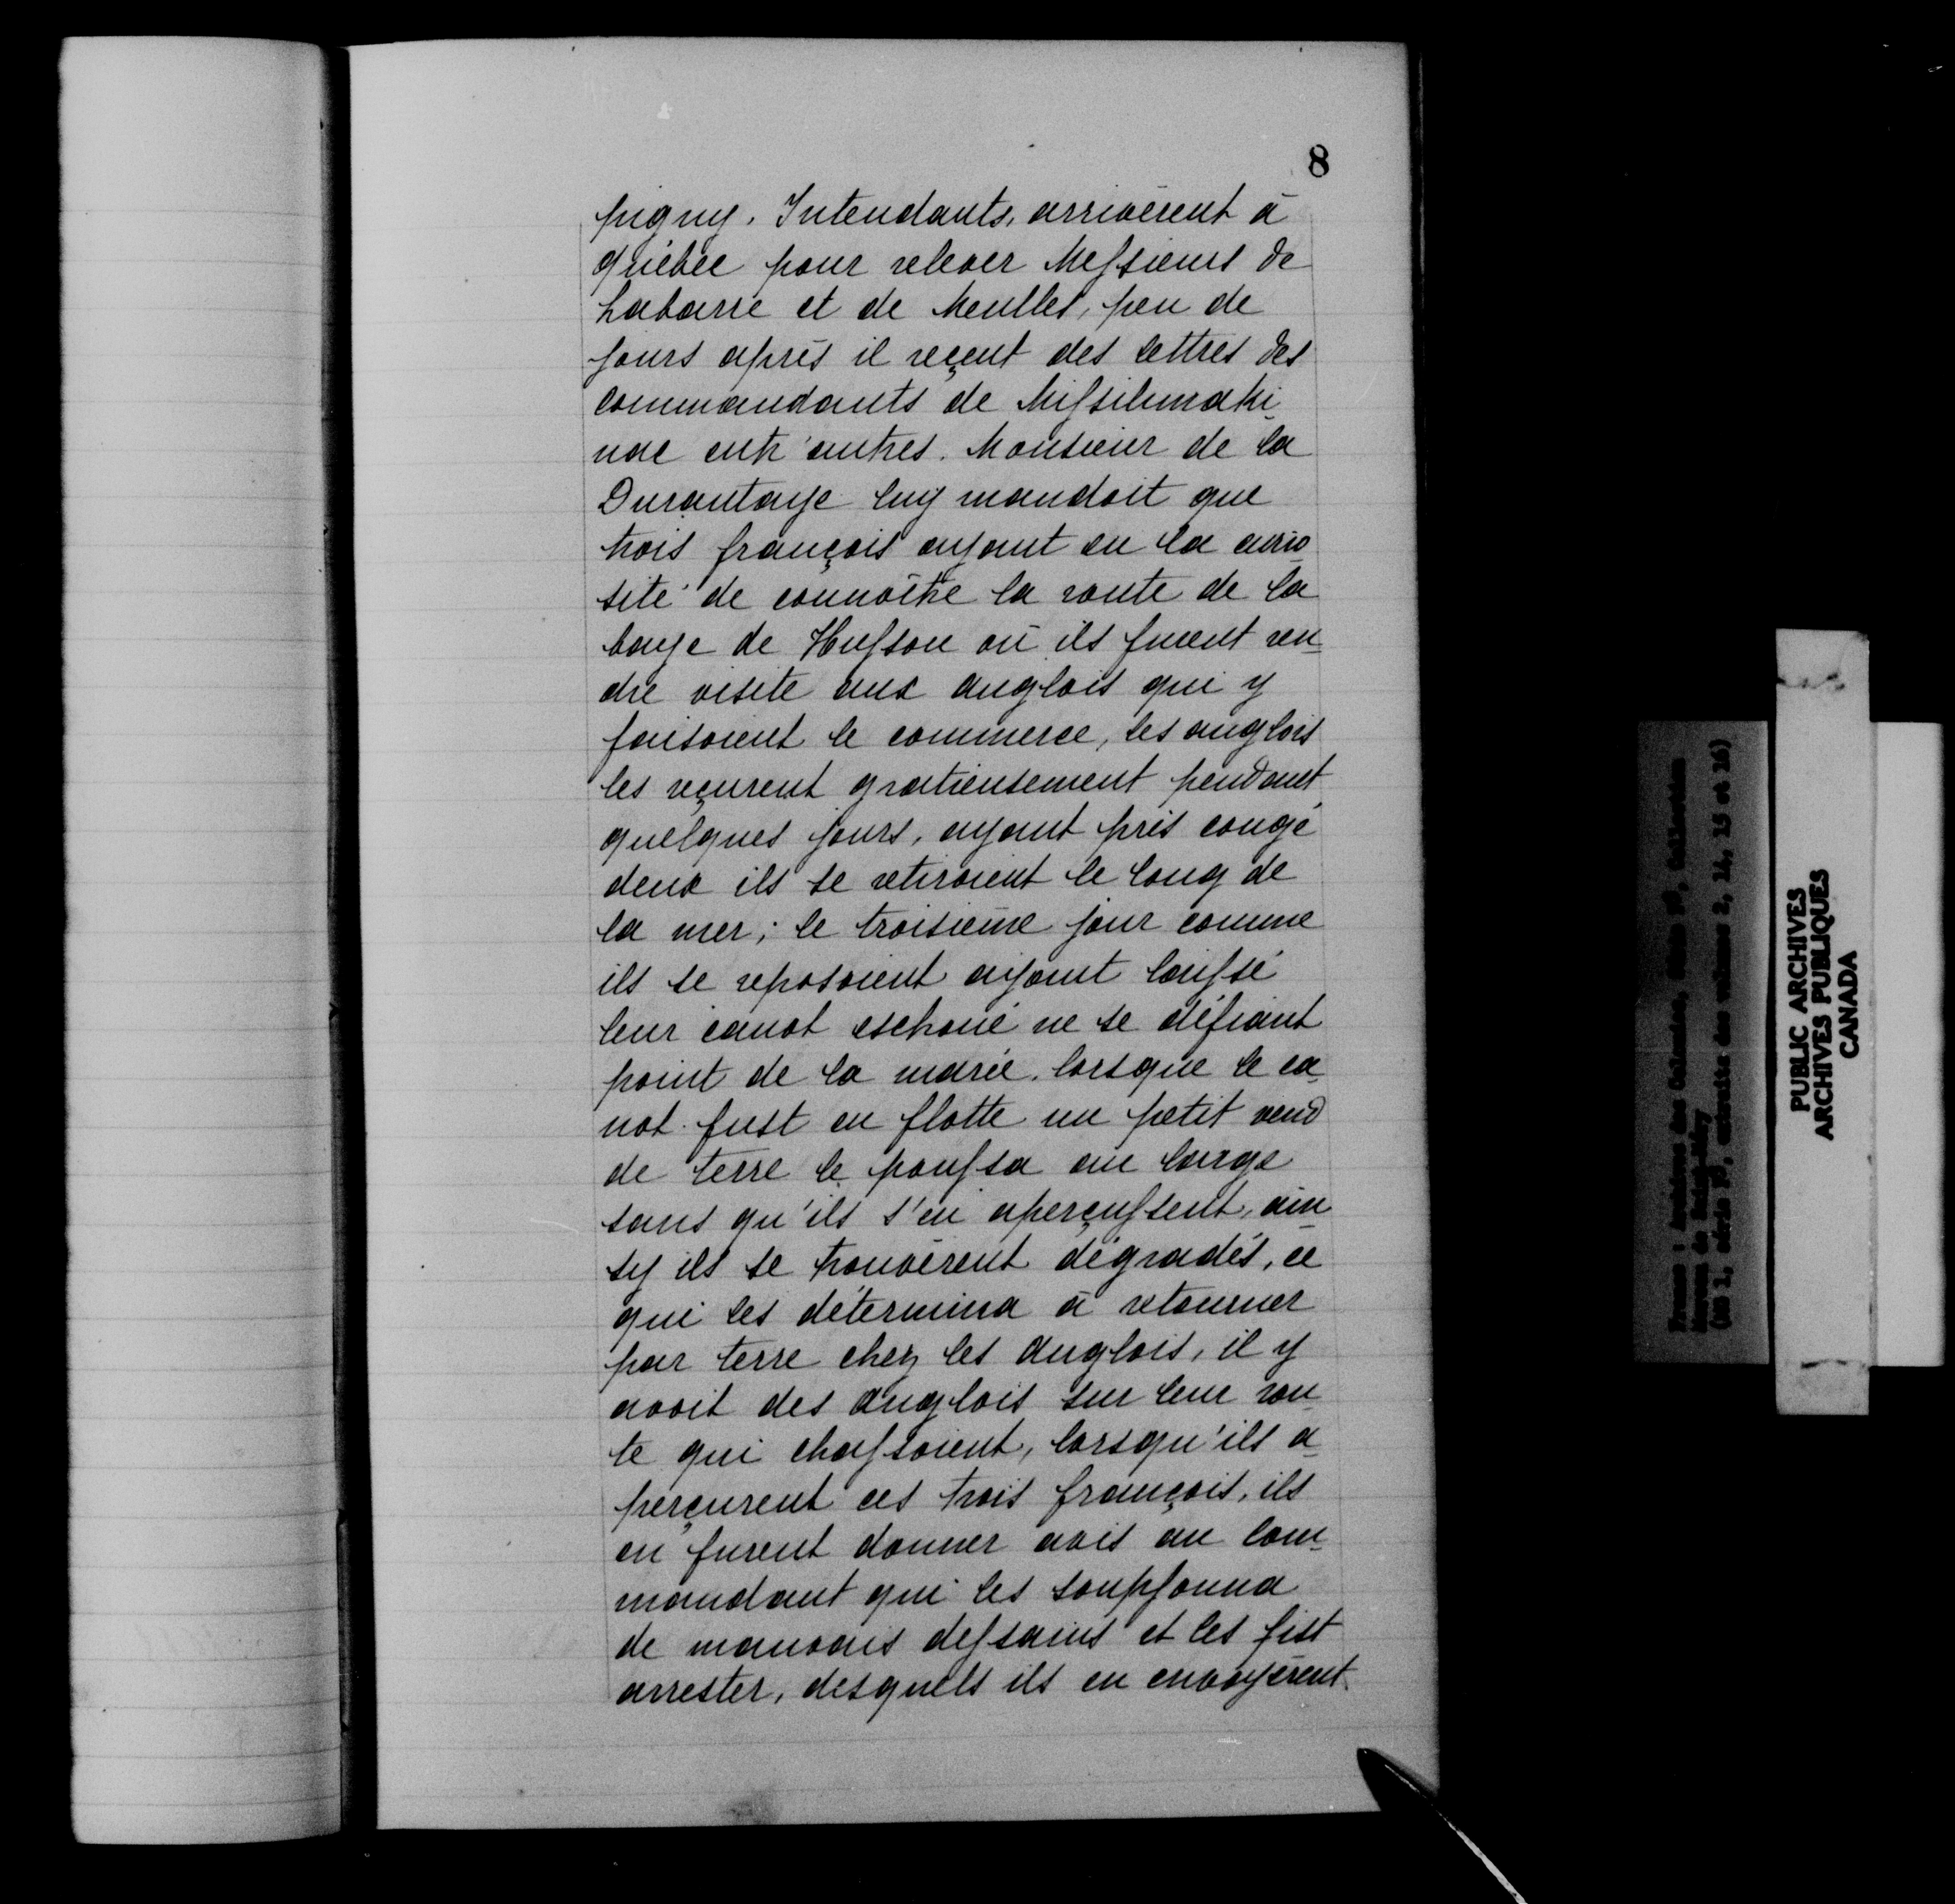 8
pigny. Intendants, arrivèrent à
Québec pour relever Messieurs de
Labarre et de Meulles, peu de
jours après il reçeut des lettres des
commandants de Missilimaki_
nac entr'autres. Monsieur de la
Durantaye luy mandoit que
trois françois ayant eu la curio
sité de connoître la route de la
baye de Husson où ils furent ren_
dre visite aux anglois qui y
faisoient le commerce, les anglois
les reçurent gratieusement pendant
quelques jours, ayant pris congé
deux ils se retiroient le long de
la mer; le troisième jour comme
ils se reposoient ayant laissé
leur canot eschoué ne se défiant
point de la marée. lorsque le ca_
not fust en flotte un petit vend
de terre le poussa au large
sans qu'ils s'en aperçussent, ain_
sy ils se trouvèrent dégradés, ce
qui les détermina à retourner
par terre chez les anglois, il y
avoit des anglois sur leur rou_
te qui chassoient, lorsqu'ils a_
perçurent ces trois françois, ils
en furent donner avis au com_
mandant qui les soupsonna
de mauvais dessains et les fist
arrester, desquels ils en envoyèrent
PUBLIC ARCHIVES
ARCHIVES PUBLIQUES
CANADA